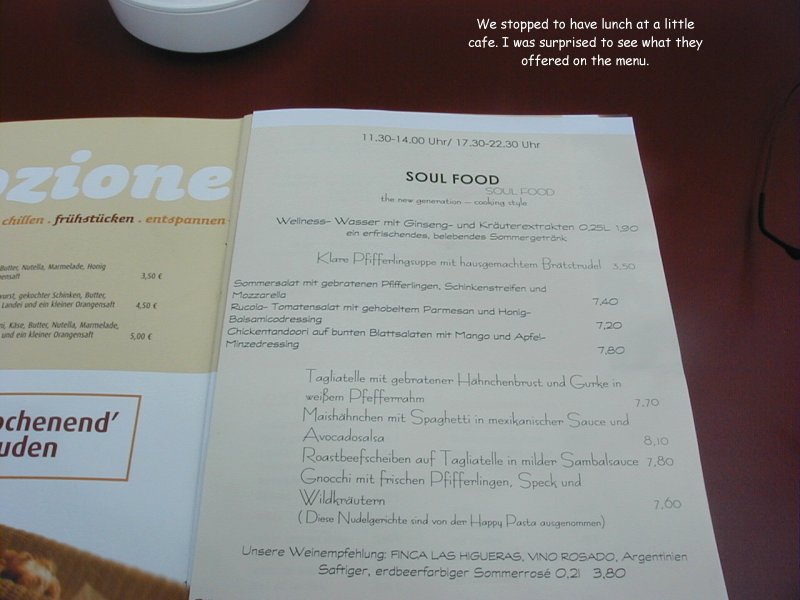 We stopped to have lunch at a little
cafe. I was surprised to see what they
offered on the menu.
ozione
chillen . frühstücken . entspannen
Butter, Nutella, Marmelade, Honig
3,50 €
wurst, gekochter Schinken, Butter,
Landei und ein kleiner Orangensaft 4,50 €
Käse, Butter, Nutella, Marmelade,
und ein kleiner Orangensaft 5,00 €
ochenend'
uden
11.30-14.00 Uhr/ 17.30-22.30 Uhr
SOUL FOOD
SOUL FOOD
the new generation – cooking style
Wellness- Wasser mit Ginseng- und Kräuterextrakten 0,25L 1,90
ein erfrischendes, belebendes Sommergetränk
Klare Pfifferlingsuppe mit hausgemachtem Brätstrudel 3,50
Sommersalat mit gebratenen Pfifferlingen, Schinkenstreifen und
Mozzarella 7,40
Rucola- Tomatensalat mit gehobeltem Parmesan und Honig-
Balsamicodressing 7,20
Chickentandoori auf bunten Blattsalaten mit Mango und Apfel-
Minzedressing 7,80
Tagliatelle mit gebratener Hähnchenbrust und Gurke in
weißem Pfefferrahm 7,70
Maishähnchen mit Spaghetti in mexikanischer Sauce und
Avocadosalsa 8,10
Roastbeefscheiben auf Tagliatelle in milder Sambalsauce 7,80
Gnocchi mit frischen Pfifferlingen, Speck und
Wildkräutern 7,60
(Diese Nudelgerichte sind von der Happy Pasta ausgenommen)
Unsere Weinempfehlung: FINCA LAS HIGUERAS, VINO ROSADO, Argentinien
Saftiger, erdbeerfarbiger Sommerrosé 0,2l 3,80